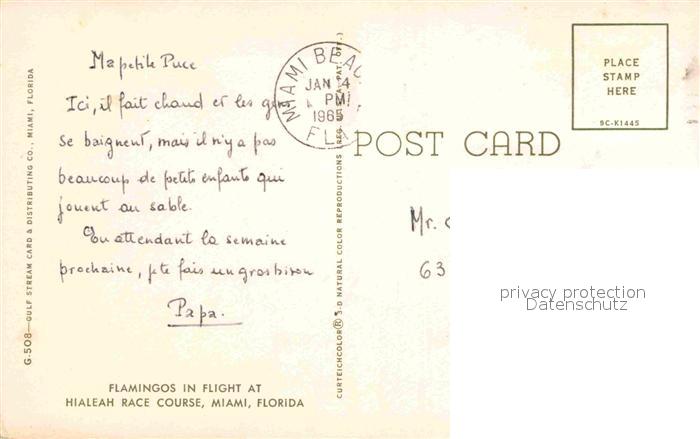 Ma petite Puce
Ici, il fait chaud et les gens
se baignent, mais il n'y a pas
beaucoup de petits enfants qui
jouent au sable.
En attendant la semaine
prochaine, je te fais un gros bison
Papa.
FLAMINGOS IN FLIGHT AT
HIALEAH RACE COURSE, MIAMI, FLORIDA
G-508—GULF STREAM CARD & DISTRIBUTING CO., MIAMI, FLORIDA
CURTEICHCOLOR® 3-D NATURAL COLOR REPRODUCTIONS (REG. U.S.A. PAT. OFF.)
MIAMI BEAC
JAN 4
PM
1965
FL
POST CARD
PLACE
STAMP
HERE
9C-K1445
Mr.
63
privacy protection
Datenschutz